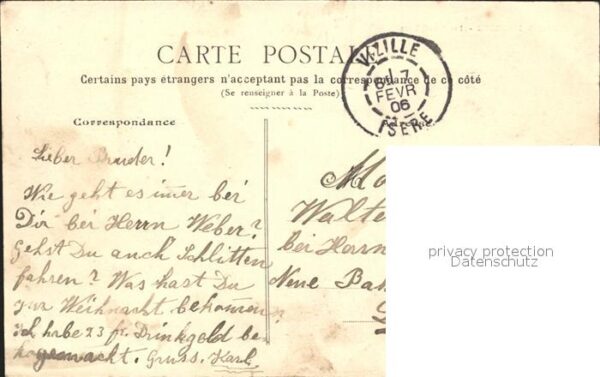 CARTE POSTALE
Certains pays étrangers n'acceptant pas la correspondance de ce côté
(Se renseigner à la Poste)
VIZILLE
7
FEVR
06
ISERE
Correspondance
Lieber Bruder!
Wie geht es im̄er bei
Dir bei Herrn Weber?
gehst Du auch Schlitten
fahren? Was hast Du
zur Weihnacht bekommen?
ich habe 23 fr. Drinkgeld be
gemacht. Gruss. Karl
Walte
bei Herrn
Neue Bah
privacy protection
Datenschutz